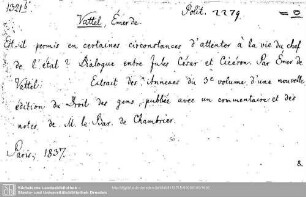 1321 5
Polit. 2279.
Vattel, Emer de.
Est-il permis en certaines circonstances d'attenter à la vie du chef
de l'état? Dialogue entre Jules César et Cicéron. Par Emer de
Vattel. Extrait des Annexes du 3e volume d'une nouvelle
édition du Droit des gens, publiée avec un commentaire et des
notes, de M. le Bar. de Chambrier.
Paris, 1837.
8.